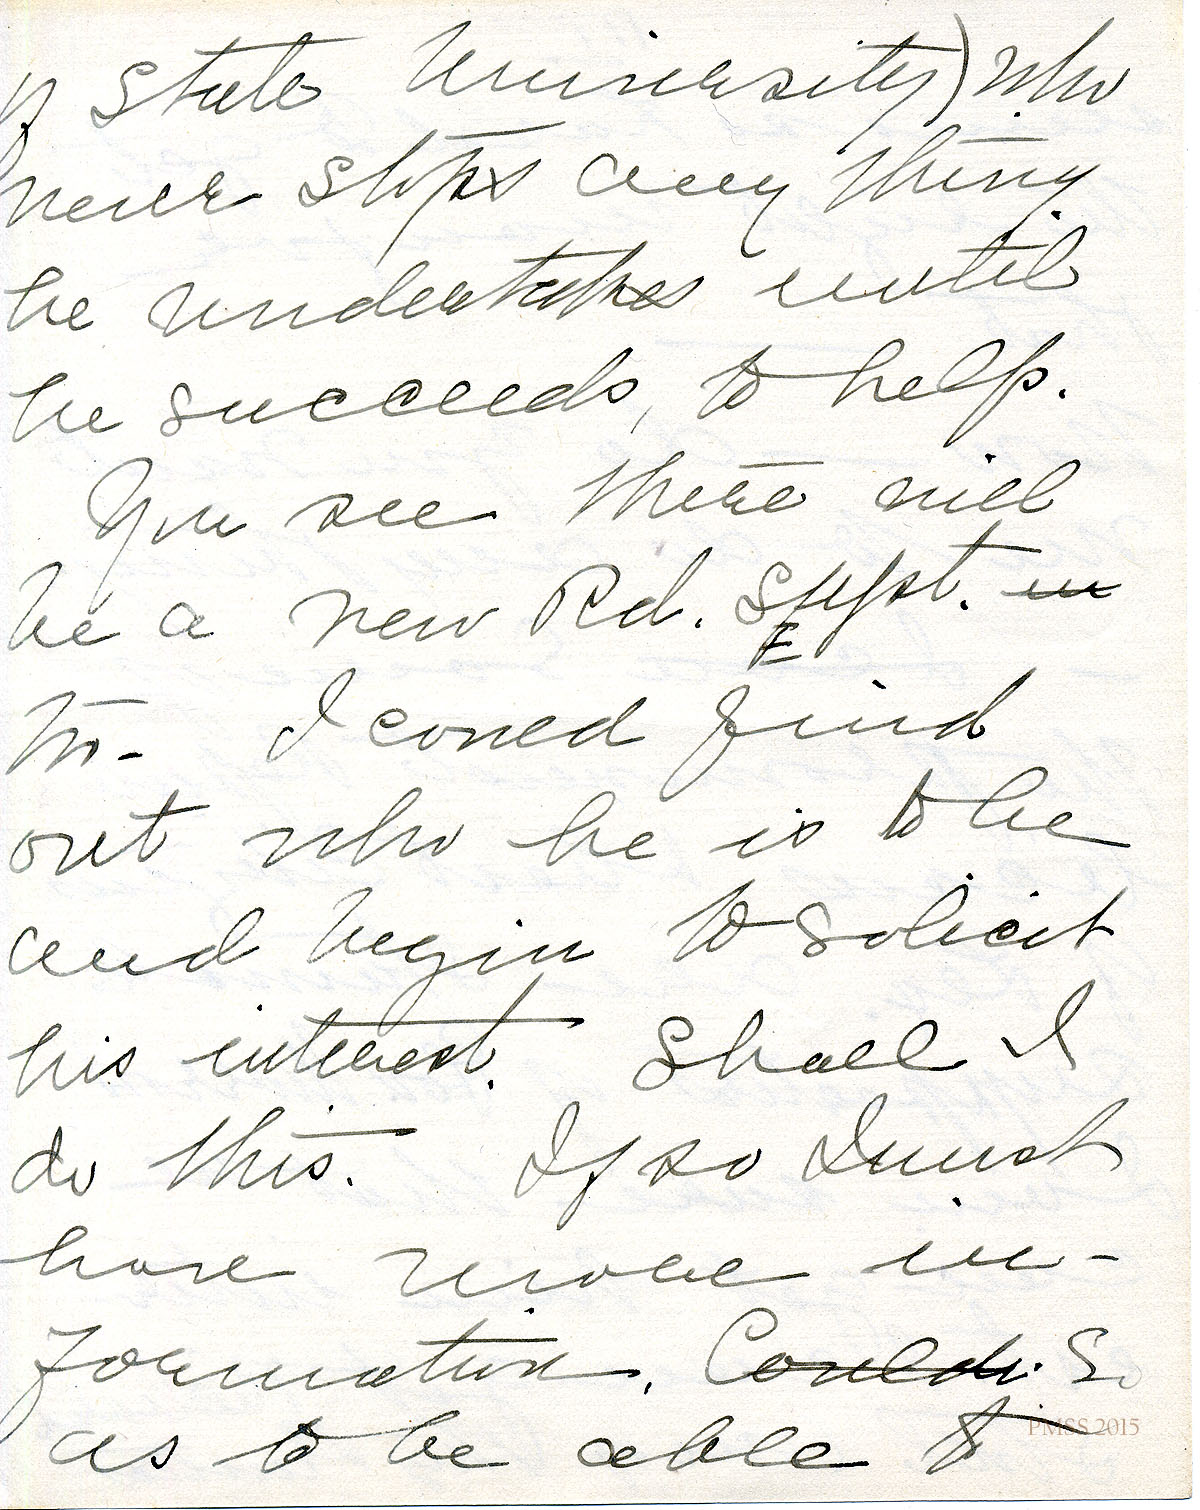 of State University) who
never stops any thing
he undertakes until
he succeeds, to help.
You see there will
be a new Rd. Supt. in
E
to- I coned find
out who he is to be
and begin to solicit
his interest. Shall I
do this. If so I must
have more in-
formation. Could So
as to be able to
PMSS 2015